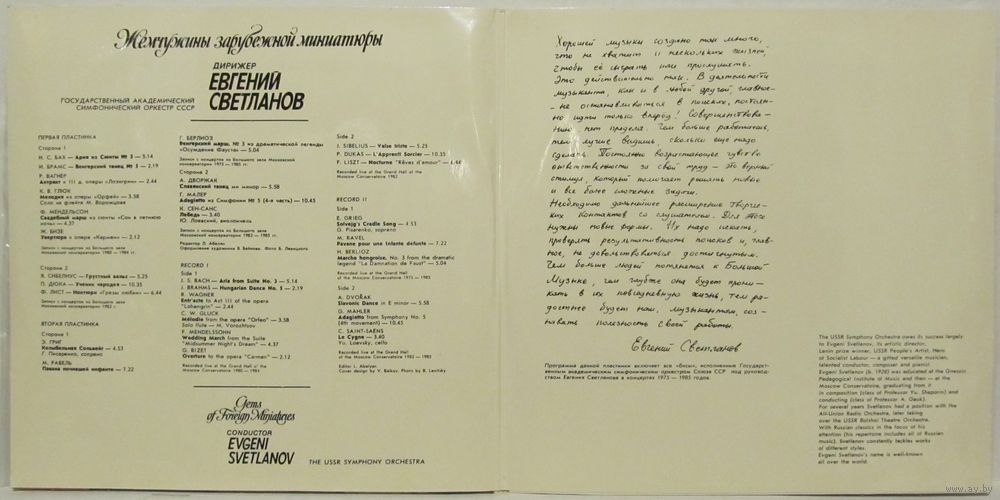 Жемчужины зарубежной миниатюры
ДИРИЖЕР
ЕВГЕНИЙ
СВЕТЛАНОВ
ГОСУДАРСТВЕННЫЙ АКАДЕМИЧЕСКИЙ
СИМФОНИЧЕСКИЙ ОРКЕСТР СССР
ПЕРВАЯ ПЛАСТИНКА
Сторона 1
И. С. БАХ — Ария из Сюиты № 3 — 5.14
И. БРАМС — Венгерский танец № 5 — 2.19
Р. ВАГНЕР
Антракт к III д. оперы «Лоэнгрин» — 2.44
К. В. ГЛЮК
Мелодия из оперы «Орфей» — 3.58
Соло на флейте М. Ворожцова
Ф. МЕНДЕЛЬСОН
Свадебный марш из сюиты «Сон в летнюю
ночь» — 4.37
Ж. БИЗЕ
Увертюра к опере «Кармен» — 2.12
Запись с концертов из Большого зала
Московской консерватории 1980 — 1984 гг.
Сторона 2
Я. СИБЕЛИУС — Грустный вальс — 5.25
П. ДЮКА — Ученик чародея — 10.35
Ф. ЛИСТ — Ноктюрн «Грезы любви» — 6.44
Запись с концертов из Большого зала Московской
консерватории 1983 г.
ВТОРАЯ ПЛАСТИНКА
Сторона 1
Э. ГРИГ
Колыбельная Сольвейг — 4.53
Г. Писаренко, сопрано
М. РАВЕЛЬ
Павана почившей инфанте — 7.22
Г. БЕРЛИОЗ
Венгерский марш, № 3 из драматической легенды
«Осуждение Фауста» — 5.04
Запись с концертов из Большого зала Московской
консерватории 1975 — 1985 гг.
Сторона 2
А. ДВОРЖАК
Славянский танец ми минор — 5.58
Г. МАЛЕР
Adagietto из Симфонии № 5 (4-я часть) — 10.45
К. СЕН-САНС
Лебедь — 3.40
Ю. Лоевский, виолончель
Запись с концертов из Большого зала Московской
консерватории 1982 — 1983 гг.
Редактор Л. Абелян
Оформление художника В. Бойкова Фото В. Левицкого
RECORD I
Side 1
J. S. BACH — Aria from Suite No. 3 — 5.14
J. BRAHMS — Hungarian Dance No. 5 — 2.19
R. WAGNER
Entr'acte to Act III of the opera
"Lohengrin" — 2.44
C. W. GLUCK
Mélodie from the opera "Orfeo" — 3.58
Solo flute — M. Vorozhtsov
F. MENDELSSOHN
Wedding March from the Suite
"Midsummer Night's Dream" — 4.37
G. BIZET
Overture to the opera "Carmen" — 2.12
Recorded live at the Grand Hall of the
Moscow Conservatoire 1980 — 1984
Side 2
J. SIBELIUS — Valse triste — 5.25
P. DUKAS — L'Apprenti Sorcier — 10.35
F. LISZT — Nocturne "Rêves d'amour" — 6.44
Recorded live at the Grand Hall of the
Moscow Conservatoire 1983
RECORD II
Side 1
E. GRIEG
Solvejg's Cradle Song — 4.53
G. Pisarenko, soprano
M. RAVEL
Pavane pour une infante défunte — 7.22
H. BERLIOZ
Marche hongroise, No. 3 from the dramatic
legend "La Damnation de Faust" — 5.04
Recorded live at the Grand Hall
of the Moscow Conservatoire 1975 — 1985
Side 2
A. DVOŘÁK
Slavonic Dance in E minor — 5.58
G. MAHLER
Adagietto from Symphony No. 5
(4th movement) — 10.45
C. SAINT-SAËNS
Le Cygne — 3.40
Yu. Loevsky, cello
Recorded live at the Grand Hall
of the Moscow Conservatoire 1982 — 1983
Editor L. Abelyan
Cover design by V. Boikov. Photo by B. Levitsky
Gems
of Foreign Miniatures
CONDUCTOR
EVGENI
SVETLANOV
THE USSR SYMPHONY ORCHESTRA
Хорошей музыки создано так много,
что не хватит и нескольких жизней,
чтобы её сыграть или прослушать.
Это действительно так. В деятельности
музыканта, как и в любой другой, главное-
- не останавливаться в поисках, постоян-
но идти только вперед! Совершенствова-
нию нет предела. Чем больше работаешь,
тем лучше видишь сколько еще надо
сделать. Постоянно возрастающее чувство
ответственности за свой труд - это верный
стимул, который помогает решать новые
и все более сложные задачи.
Необходимо дальнейшее расширение творчес-
ких контактов со слушателем. Для того
нужны новые формы. Их надо искать,
проверять результативность поисков и, глав-
ное, не довольствоваться достигнутым.
Чем больше людей потянется к Большой
Музыке, чем глубже она будет прони-
кать в их повседневную жизнь, тем ра-
достнее будет нам, музыкантам, соз-
навать полезность своей работы.
Евгений Светланов
Программа данной пластинки включает все «бисы», исполненные Государствен-
ным академическим симфоническим оркестром Союза ССР под руковод-
ством Евгения Светланова в концертах 1975 — 1985 годов.
The USSR Symphony Orchestra owes its success largely
to Evgeni Svetlanov, its artistic director.
Lenin prize winner, USSR People's Artist, Hero
of Socialist Labour — a gifted versatile musician,
talented conductor, composer and pianist.
Evgeni Svetlanov (b. 1928) was educated at the Gnessin
Pedagogical Institute of Music and then — at the
Moscow Conservatoire, graduating from it
in composition (class of Professor Yu. Shaporin) and
conducting (class of Professor A. Gauk).
For several years Svetlanov had a position with the
All-Union Radio Orchestra, later taking
over the USSR Bolshoi Theatre Orchestra.
With Russian classics in the focus of his
attention (his repertoire includes all of Russian
music). Svetlanov constantly tackles works
of different styles.
Evgeni Svetlanov's name is well-known
all over the world.
www.ay.by